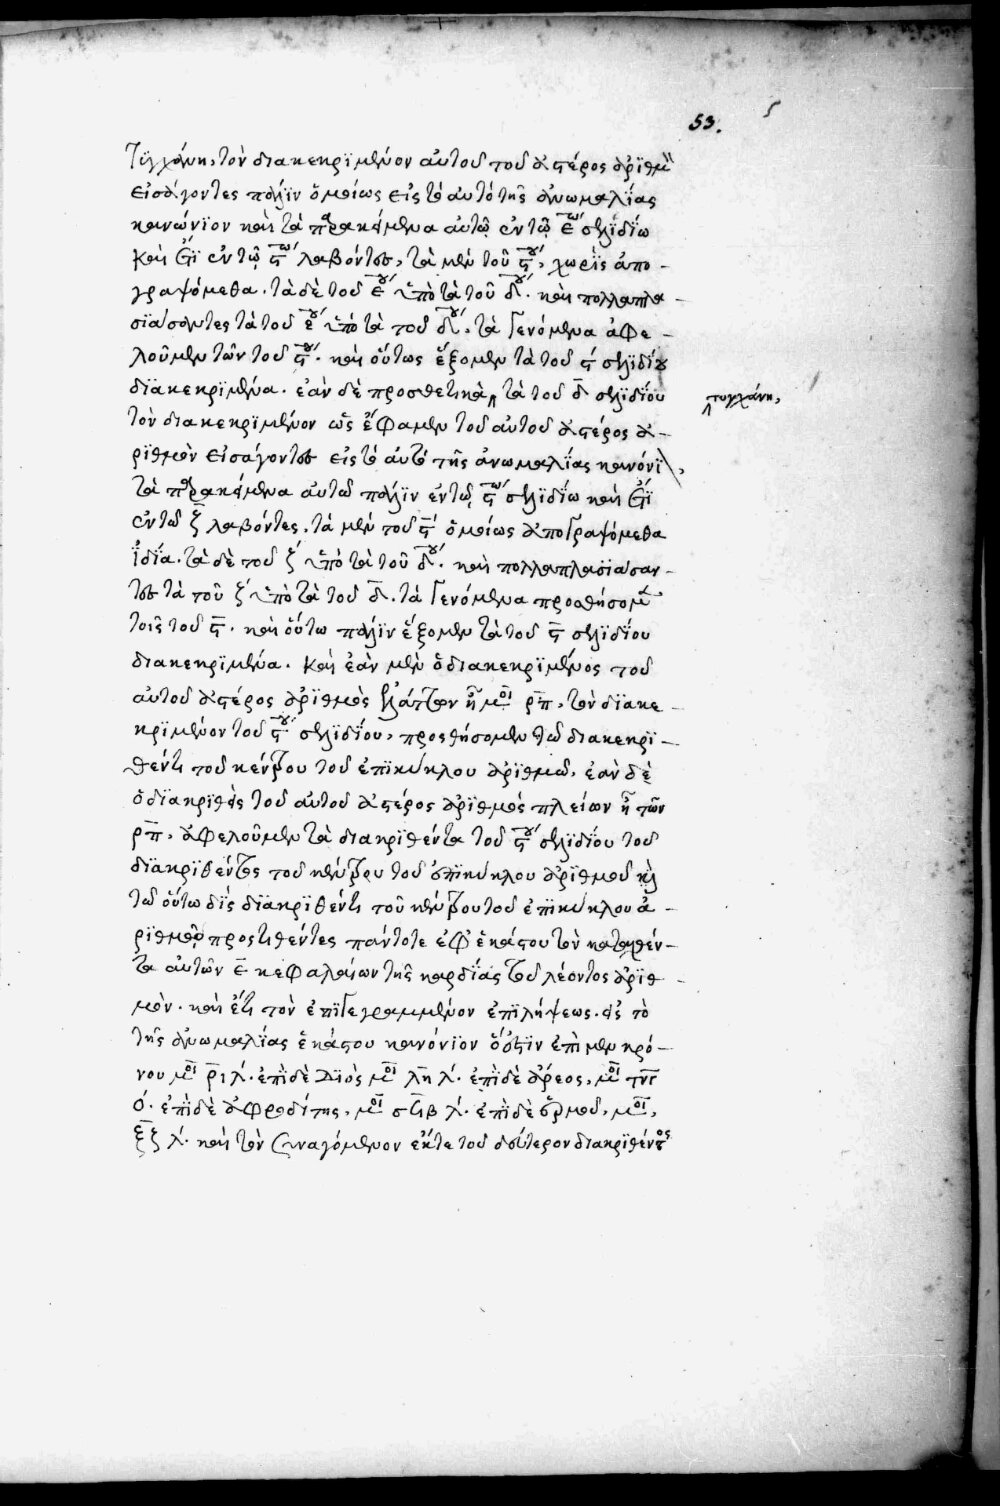 53.
τυγχάνη, τὸν διακεκριμένον αὐτοῦ τοῦ ἀστέρος ἀριθμ
εἰσάγοντες πάλιν ὁμοίως εἰς τὸ αὐτὸ τῆς ἀνωμαλίας
κανόνιον καὶ τὰ παρακείμενα αὐτῷ ἐν τῷ ε̅ῳ σελιδίῳ
καὶ ἔτι ἐν τῷ ϛ̅ῳ λαβόντες, τὰ μὲν τοῦ ϛ̅ου, χωρὶς ἀπο-
γραψόμεθα. τὰ δὲ τοῦ ε̅ου ὑπὸ τὰ τοῦ δ̅ου. καὶ πολλαπλα-
σιάσοντες τὰ τοῦ ε̅ου ὑπὸ τὰ τοῦ δ̅ου, τὰ γενόμενα ἀφε-
λοῦμεν τῶν τοῦ ϛ̅ου. καὶ οὕτως ἕξομεν τὰ τοῦ ϛ̅ σελιδίου
διακεκριμένα. ἐὰν δὲ προσθετικὰ τὰ τοῦ δ̅ σελιδίου
τυγχάνη,
τὸν διακεκριμένον ὡς ἔφαμεν τοῦ αὐτοῦ ἀστέρος ἀ-
ριθμὸν εἰσάγοντες εἰς τὸ αὐτὸ τῆς ἀνωμαλίας κανόνι,
τὰ παρακείμενα αὐτῶ πάλιν ἐν τῷ ϛ̅ῳ σελιδίω καὶ ἔτι
ἐν τῶ ζ̅ λαβόντες, τὰ μὲν τοῦ ϛ̅ ὁμοίως ἀπογραψόμεθα
ἰδία. τὰ δὲ τοῦ ζ ὑπὸ τὰ τοῦ δ̅ου. καὶ πολλαπλασιάσαν-
τες τὰ τοῦ ζ ὑπὸ τὰ τοῦ δ̅. τὰ γενόμενα προσθήσομ
τοῖς τοῦ ϛ̅. καὶ οὕτω πάλιν ἕξομεν τὰ τοῦ ϛ̅ σελιδίου
διακεκριμένα. καὶ ἐὰν μὲν ὁ διακεκριμένος τοῦ
αὐτοῦ ἀστέρος ἀριθμὸς ἐλάττων ἢ μοι ρ̅π̅, τὸν διακε-
κριμένον τοῦ ϛ̅ου σελιδίου, προσθήσομεν τῶ διακεκρι-
θέντι τοῦ κέντρου τοῦ ἐπικύκλου ἀριθμῶ, ἐὰν δὲ
ὁ διακριθεὶς τοῦ αὐτοῦ ἀστέρος ἀριθμὸς πλείων ἢ τῶν
ρ̅π̅, ἀφελοῦμεν τὰ διακριθέντα τοῦ ϛ̅ου σελιδίου τοῦ
διακριθέντος τοῦ κέντρου τοῦ ἐπικύκλου ἀριθμοῦ καὶ
τῶ οὕτω δὶς διακριθέντι τοῦ κέντρου τοῦ ἐπικύκλου ἀ-
ριθμῶ προστιθέντες πάντοτε ἐφ' ἑκάστου τὸν
τα αὐτῶν ε̅ κεφαλαίων τῆς καρδίας τοῦ λέοντος ἀριθ-
μόν. καὶ ἔτι τὸν ἐπιγεγραμμένον ἐπιλήψεως. εἰς τὸ
τῆς ἀνωμαλίας ἑκάστου κανόνιον ὅ ἐστιν ἐπὶ μὲν κρό-
νου μοι ρ̅ι λ. ἐπὶ δὲ Διὸς μοι λ̅η λ. ἐπὶ δὲ ἄρεος, μοι τνγ
ο. ἐπὶ δὲ ἀφροδίτης, μοι σ̅ι̅β λ. ἐπὶ δὲ ἑρμοῦ, μοι,
ξ̅ζ λ. καὶ τὸν συναγόμενον ἔκ τε τοῦ δεύτερον διακριθέντος